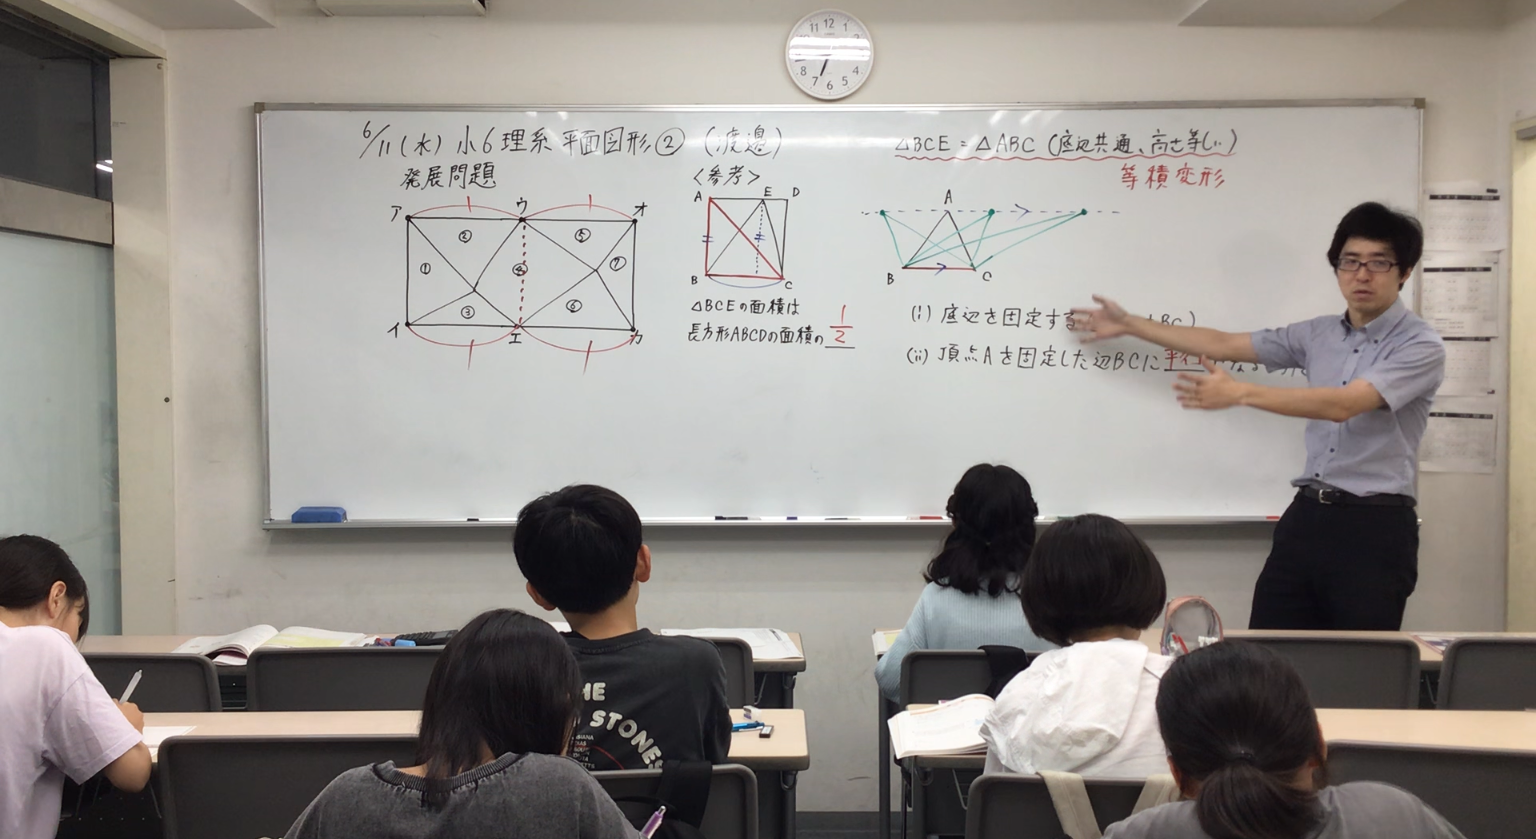 6/11(水) 小6理系 平面図形② (渡邉)
発展問題
ア ウ オ
① ② ③ ④ ⑤ ⑥ ⑦
イ エ カ
<参考>
A E D
B C
△BCEの面積は
長方形ABCDの面積の 1/2
△BCE = △ABC (底辺共通、高さ等しい)
等積変形
A
B C
(i) 底辺を固定する ABC)
(ii) 頂点Aを固定した辺BCに平行
11 12 1
8 7 6 5 4
THE
STONES